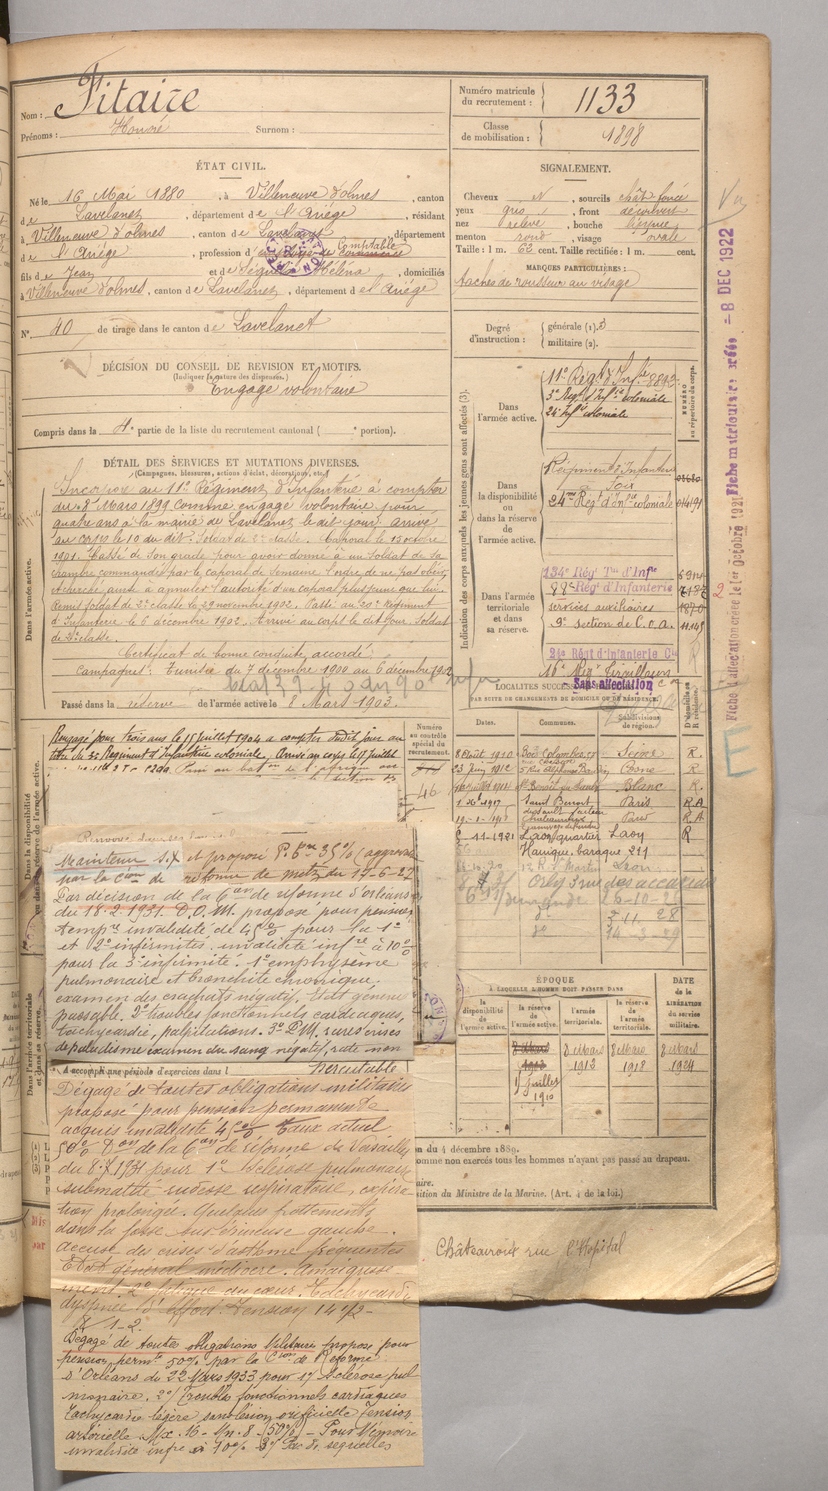 Nom : Fitaire
Prénoms : Honoré Surnom :
Numéro matricule du recrutement : 1133
Classe de mobilisation : 1898
ÉTAT CIVIL.
Né le 16 Mai 1880, à Villeneuve d'olmes, canton
de Lavelanet, département de l'Ariège, résidant
à Villeneuve d'olmes, canton de Lavelanet, département
de l'Ariège, profession d Comptable
fils de Jean et de Héléna, domiciliés
à Villeneuve d'olmes, canton de Lavelanet, département de l'Ariège
N° 40 de tirage dans le canton de Lavelanet
DÉCISION DU CONSEIL DE REVISION ET MOTIFS.
(Indiquer la nature des dispenses.)
Engagé volontaire
Compris dans la 4e partie de la liste du recrutement cantonal ( e portion).
SIGNALEMENT.
Cheveux N, sourcils chât foncé
yeux gris, front découvert
nez relevé, bouche
menton rond, visage ovale
Taille : 1 m. 63 cent. Taille rectifiée : 1 m. cent.
MARQUES PARTICULIÈRES :
taches de rousseur au visage
Degré d'instruction : générale (1). 3
militaire (2).
DÉTAIL DES SERVICES ET MUTATIONS DIVERSES.
(Campagnes, blessures, actions d'éclat, décorations, etc.)
Incorporé au 11e Régiment d'Infanterie à compter
du 8 Mars 1899 comme engagé volontaire pour
quatre ans à la mairie de Lavelanet le dit jour arrivé
au corps le 10 du dit. Soldat de 2e classe. Caporal le 15 octobre
1901. Cassé de son grade pour avoir donné à un soldat de sa
chambre commandé par le caporal de semaine l'ordre de ne pas obéir,
et cherché ainsi à annuler l'autorité d'un caporal plus jeune que lui.
Remis soldat de 2e classe le 29 novembre 1902. Passé au 20e Régiment
d'Infanterie le 6 décembre 1902. Arrivé au corps le dit jour Soldat
de 2e classe.
Certificat de bonne conduite accordé.
Campagnes : Tunisie du 7 décembre 1900 au 6 décembre 1902
Passé dans la réserve de l'armée active le 8 Mars 1903.
Dans l'armée active.
Indication des corps auxquels les jeunes gens sont affectés (3).
NUMÉRO au répertoire du corps.
Dans l'armée active.
11e Régt d'Infie 8893
3e Régt d'Infie coloniale
24e Infie coloniale
Dans la disponibilité ou dans la réserve de l'armée active.
Régiment d'Infanterie
Foix
24me Régt d'Infie coloniale 01491
Dans l'armée territoriale et dans sa réserve.
134e Régt Tal d'Infie
99e Régt d'Infanterie
services auxiliaires
9e section de C.O.A. 11.145
21e Régt d'Infanterie Cle
16e Régt Tirailleurs
Sans affectation
LOCALITÉS SUCCESSIVES
PAR SUITE DE CHANGEMENTS DE DOMICILE OU DE RÉSIDENCE.
Dates. Communes. Subdivisions de région. D domicile ou R résidence.
8 Août 1910 Bois Colombes Seine R.
23 Juin 1912 5 Rue Alphonse Cosne R.
Juillet 1914 St Benoit du Sault Blanc R.
1 Xbre 1917 Saint Benoit Paris R.A
19-1-1918 Châteauroux Paris R.A
11-1921 Laon quartier Laon R
Hanique baraque 211
12 R. St Martin Laon
Orly 3 rue des accacias
26-10-2
11 28
Rengagé pour trois ans le 15 Juillet 1904 à compter dudit jour au
titre du 3e Régiment d'Infanterie coloniale, Arrivé au corps le 17 Juillet
Numéro au contrôle spécial du recrutement.
46
Dans la disponibilité
Dans l'armée territoriale et dans sa réserve.
Maintenu S.X et proposé P. tre 35% (approuvé
par la Cion de réforme de metz du 17-6-22
Par décision de la 6e Con de réforme d'orléans
du 18-2-1931. D.O.M. propose pour pension
tempre invalidité de 45% pour la 1e
et 2e infirmités. invalidité infre à 10%
pour la 3e infirmité. 1° emphysème
pulmonaire et bronchite chronique
examen des crachats négatif, état général
passable. 2° troubles fonctionnels cardiaques,
tachycardie, palpitations. 3° P.M. rares crises
de paludisme examen du sang négatif, rate non
percutable
A accompli une période d'exercices dans l
Dégagé de toutes obligations militaires
proposé pour pension permanente
acquis invalidité 45% taux actuel
50% Don de la 6e Con de réforme de Versailles
du 8.X.1931 pour 1° Sclérose pulmonaire
submatité rudesse respiratoire, expira-
tion prolongée. Quelques frottements
dans la fosse sus épineuse gauche.
Accuse des crises d'asthme fréquentes
Etat général médiocre. Amaigrisse-
ment. 2° fatigue au coeur. Tachycardie
dyspnée d'effort. Tension 14 1/2-
8 1-2.
Dégagé de toutes obligations Militaires propose pour
pension permte 50% par la Cion de Réforme
d'Orléans du 22 Mars 1933 pour 1° Sclérose pul-
monaire. 2° Troubles fonctionnels cardiaques
tachycardie légère sans lésion orificielle Tension
artérielle Mx. 16 - Mn. 8 - (50%) - Pour Mémoire
invalidité infre à 10% 3° Pas de séquelles
ÉPOQUE
À LAQUELLE L'HOMME DOIT PASSER DANS
la disponibilité de l'armée active. la réserve de l'armée active. l'armée territoriale. la réserve de l'armée territoriale. DATE de la LIBÉRATION du service militaire.
8 Mars 1903 8 Mars 1913 8 Mars 1918 8 Mars 1924
Juillet 1910
on du 4 décembre 1889.
omme non exercés tous les hommes n'ayant pas passé au drapeau.
aire.
sition du Ministre de la Marine. (Art. 4 de la loi.)
Châteauroux rue l'Hopital
Fiche d'affectation créée le 1er Octobre 1921
Fiche matriculaire créée - 8 DEC 1922
Vu
E